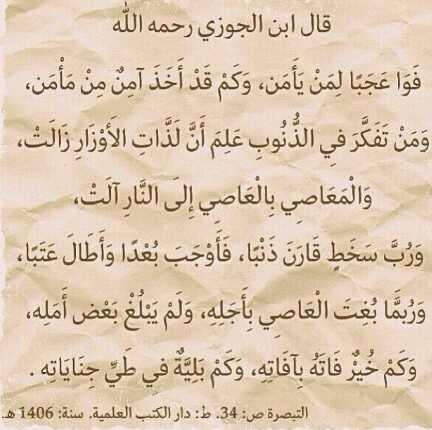 قال ابن الجوزي رحمه الله
فَوَا عَجَبًا لِمَنْ يَأْمَن، وَكَمْ قَدْ أَخَذَ آمِنٌ مِنْ مَأْمَن،
وَمَنْ تَفَكَّرَ فِي الذُّنُوبِ عَلِمَ أَنَّ لَذَّاتِ الأَوْزَارِ زَالَتْ،
وَالْمَعَاصِي بِالْعَاصِي إِلَى النَّارِ آلَتْ،
وَرُبَّ سَخَطٍ قَارَنَ ذَنْبًا، فَأَوْجَبَ بُعْدًا وَأَطَالَ عَتَبًا،
وَرُبَّمَا بُغِتَ الْعَاصِي بِأَجَلِهِ، وَلَمْ يَبْلُغْ بَعْضَ أَمَلِه،
وَكَمْ خُيِّرٌ فَاتَهُ بِآفَاتِهِ، وَكَمْ بَلِيَّةٌ في طَيِّ جِنَايَاتِه .
التبصرة ص: 34. ط: دار الكتب العلمية. سنة: 1406 هـ.